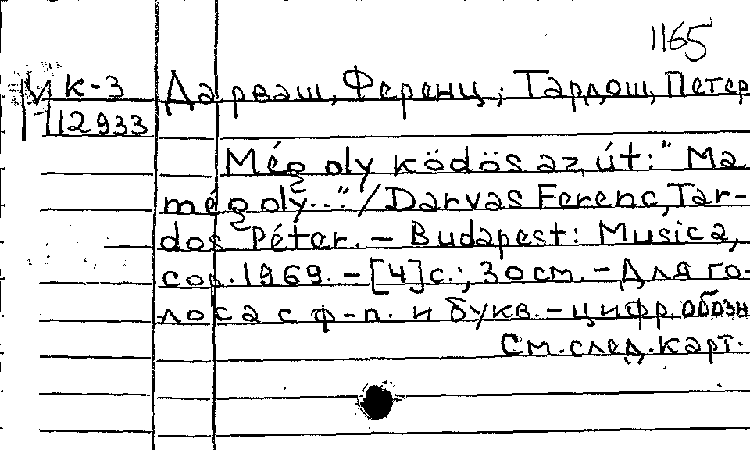 1165
МК-3 Дарваш, Ференц; Тардош, Петер
112933
Még oly ködös az út: "Ma
még oly..." / Darvas Ferenc, Tar-
dos Péter. - Budapest: Musica,
cop. 1969. - [4] с.; 30 см. - Для го-
лоса с ф-п. и букв.-цифр. обозн
См. след. карт.